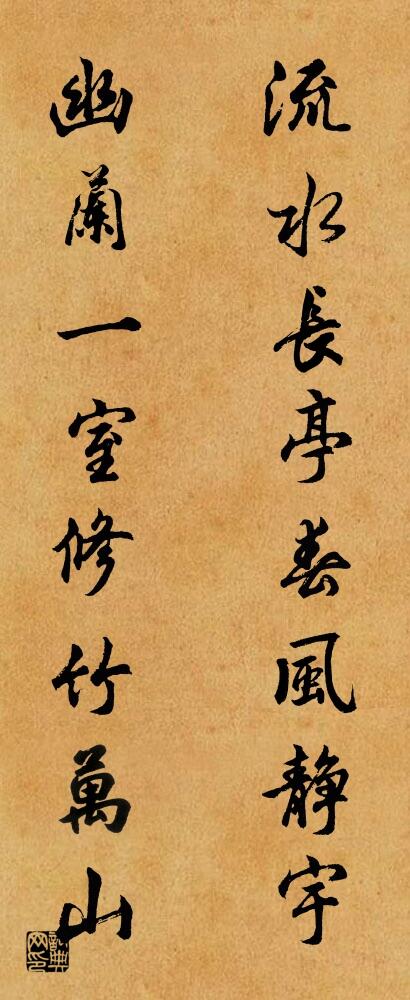 流水長亭春風静宇
幽蘭一室修竹萬山